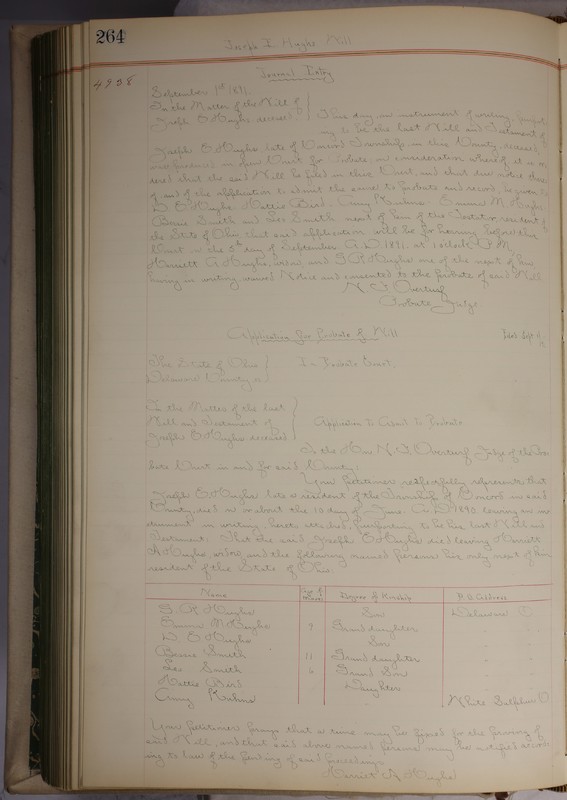 264
Joseph E Hughs Will
4928
Journal Entry
September 1st 1891.
In the Matter of the Will of
Joseph E Hughs deceased.
This day an instrument of writing, purport
ing to be the last Will and Testament of
Joseph E Hughs late of Concord Township in this County, deceased,
was produced in open Court for Probate, on consideration whereof it is or
dered that the said Will be filed in this Court, and that due notice there
of and of the application to admit the same to probate and record, be given to
D. E Hughs Hattie Bird. Amy Kuhns. Emma M. Hughs
Bessie Smith and Leo Smith next of kin of the Testator resident of
the State of Ohio that said application will be for hearing before this
Court on the 5th day of September A. D. 1891. at 1 oclock P. M.
Harriett A Hughs, widow, and G. R. Hughs one of the next of kin
having in writing waived Notice and consented to the probate of said Will.
N. F. Overturf
Probate Judge
Application for Probate of Will
Filed Sept
The State of Ohio
Delaware County ss
In Probate Court.
In the Matter of the last
Will and Testament of
Joseph E Hughs deceased
Application to Admit to Probate
To the Hon. N. F. Overturf Judge of the Pro
bate Court in and for said County:
Your petitioner respectfully represents that
Joseph E Hughs late a resident of the Township of Concord in said
County, died on about the 10 day of June A. D. 1890 leaving an ins
trument in writing, hereto attached, purporting to be his last Will and
Testament; That the said Joseph E Hughs died leaving Harriett
A Hughs, widow, and the following named persons his only next of kin
resident of the State of Ohio:
Name Degree of Kinship P. O. Address
G. R. Hughs Son Delaware O.
Emma M Hughs 9 Granddaughter " "
D. E Hughs Son " "
Bessie Smith 11 Granddaughter " "
Leo Smith 6 Grand Son " "
Hattie Bird Daughter " "
Amy Kuhns " White Sulphur O
Your petitioner prays that a time may be fixed for the proving of
said Will, and that said above named persons may be notified accord
ing to law of the pending of said proceedings
Harriet A Hughs